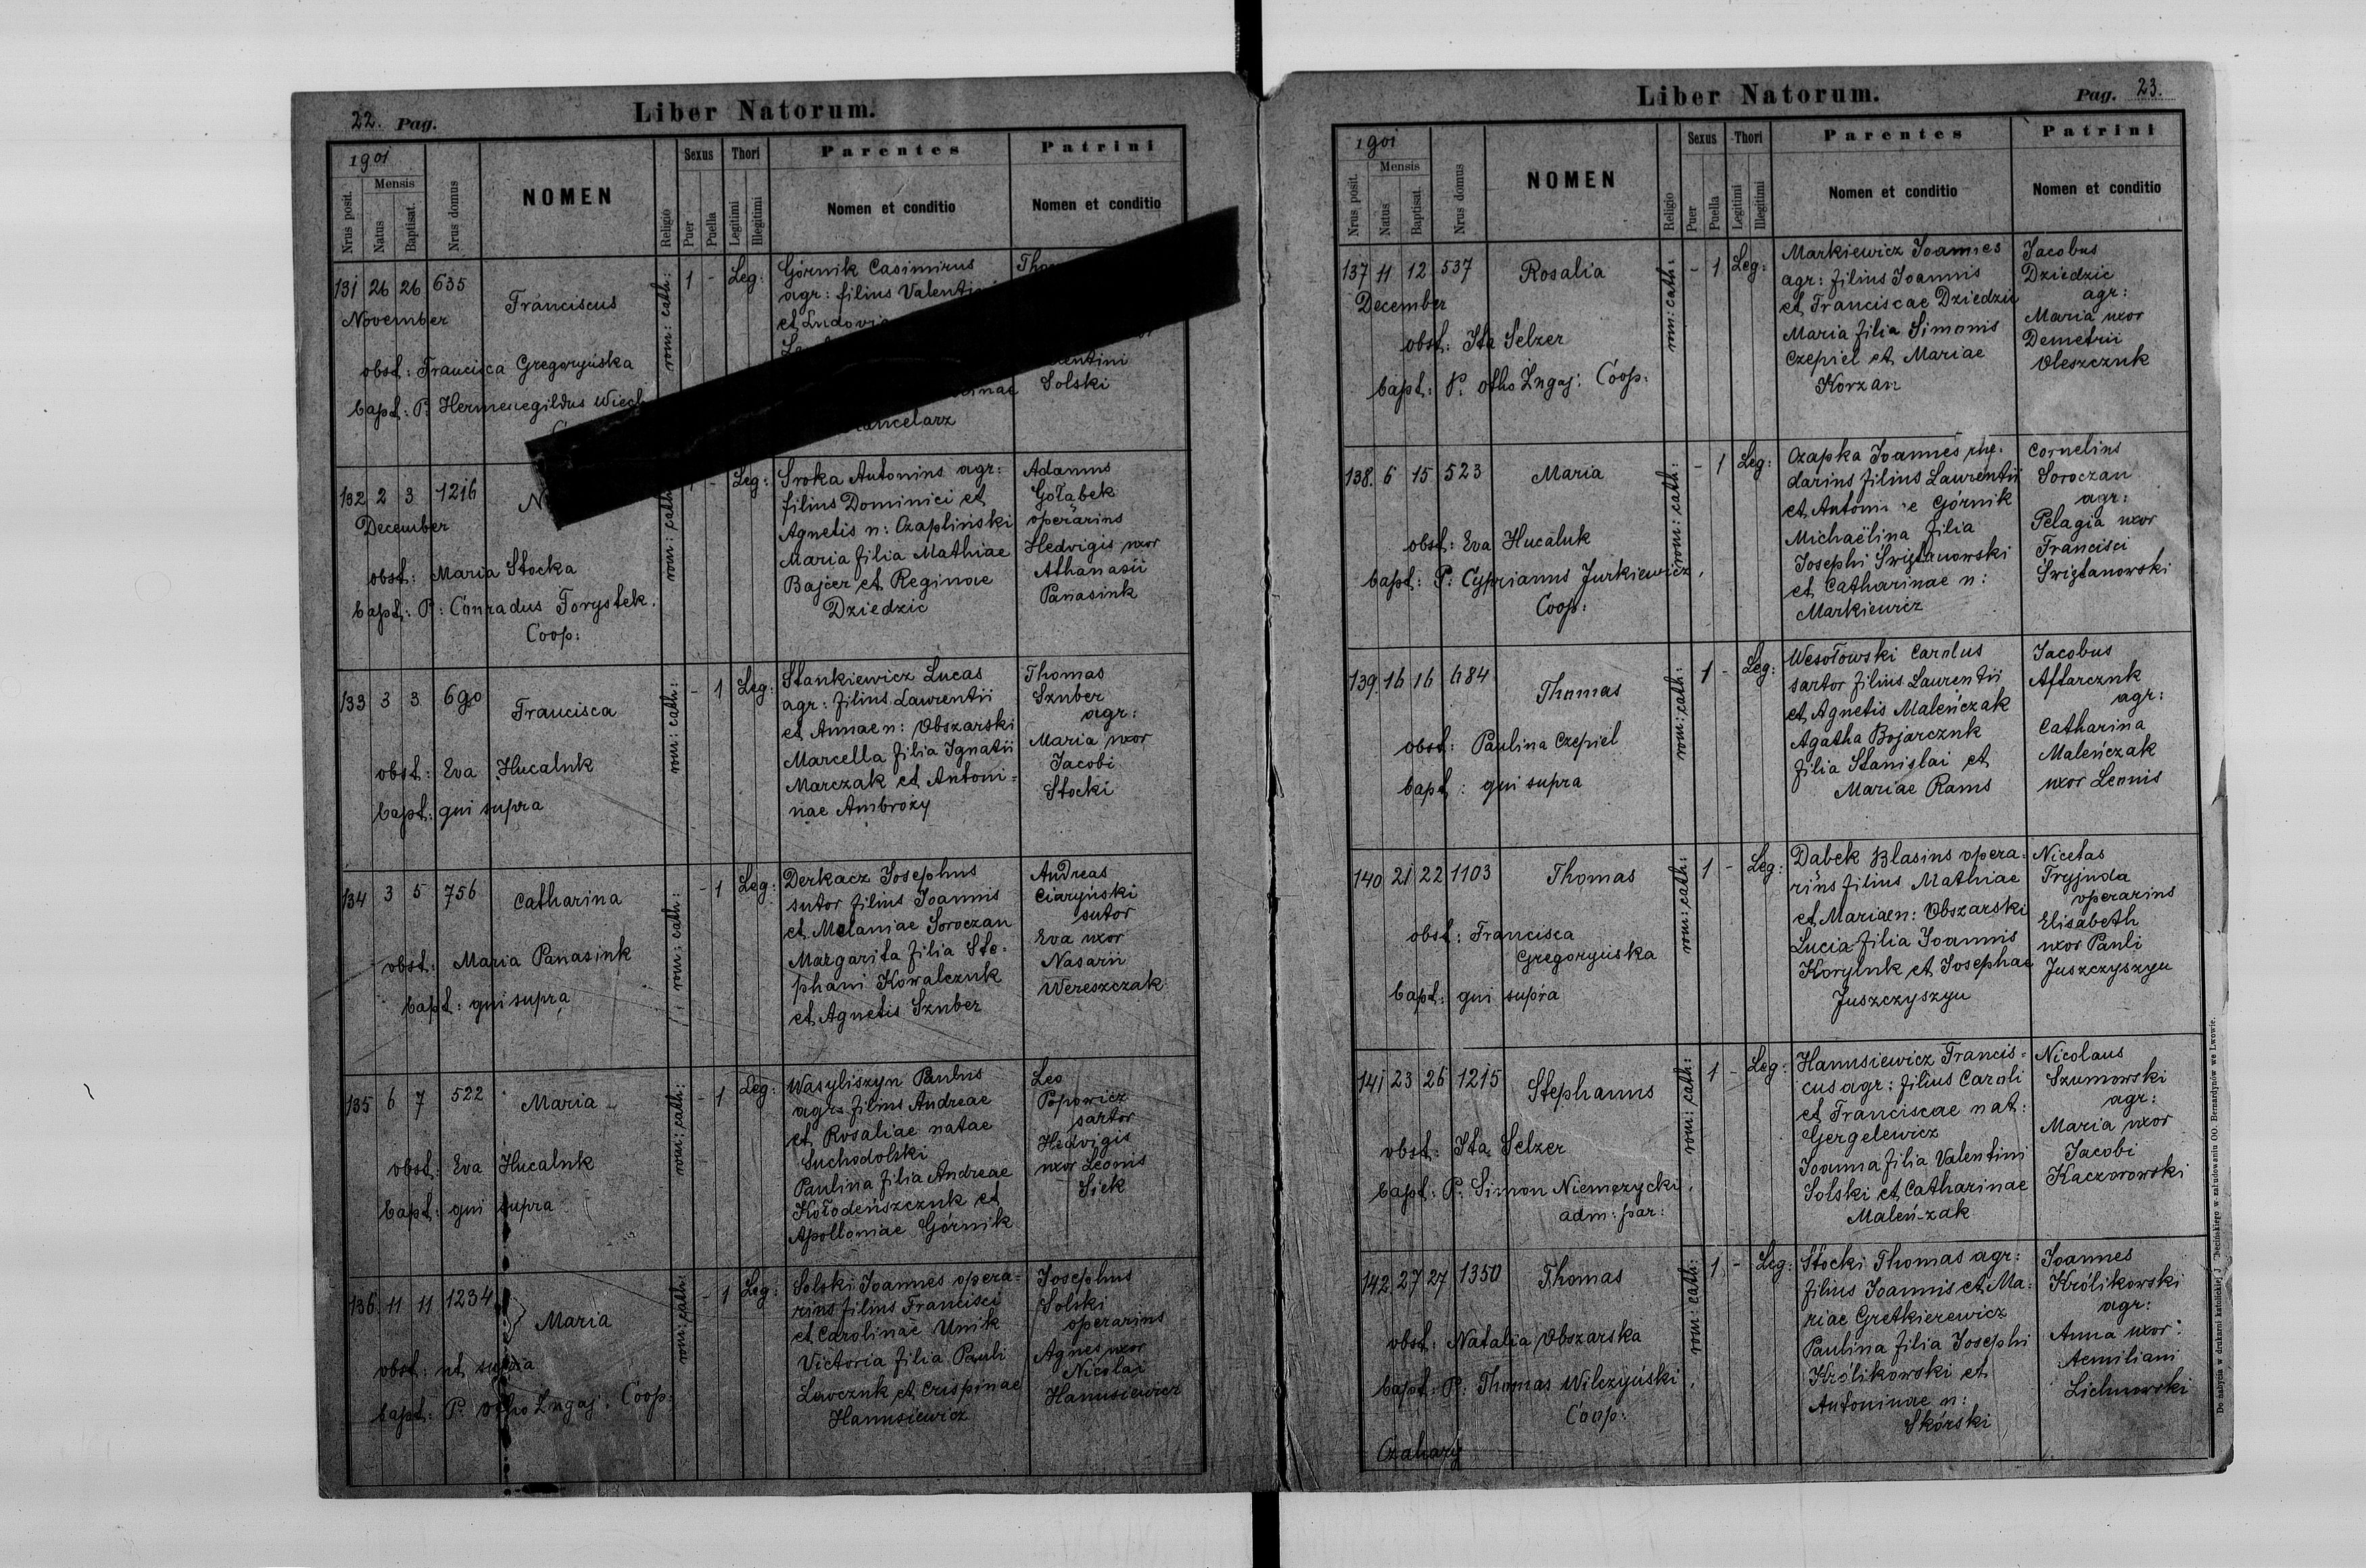 22. Pag.
Liber Natorum.
1901
Nrus posit.
Mensis
Natus
Baptisat.
Nrus domus
NOMEN
Religio
Sexus
Puer
Puella
Thori
Legitimi
Illegitimi
Parentes
Nomen et conditio
Patrini
Nomen et conditio
131 26 26 635
November
Franciscus
rom: cath:
1 - Leg:
Górnik Casimirus
agr: filius
et
obst: Francisca Gregoryńska
bapt: P. Hermenegildus
Solski
132 2 3 1216
December
rom: cath:
- Leg:
Sroka Antonius agr:
filius Dominici et
Agnetis n: Czapliński
Maria filia Mathiae
Bajer et Reginae
Dziedzic
Adamus
Gołąbek
operarius
Hedvigis uxor
Athanasii
Panasiuk
obst: Maria Stocka
bapt: P: Conradus Torystek.
Coop:
133 3 3 690
Francisca
rom: cath:
- 1 Leg:
Stankiewicz Lucas
agr: filius Laurentii
et Annae n: Obszarski
Marcella filia Ignatii
Marczak et Antoni-
nae Ambroży
Thomas
Szuber
agr:
Maria uxor
Jacobi
Stocki
obst: Eva Hucaluk
bapt: qui supra
134 3 5 756
Catharina
rom: cath:
- 1 Leg:
Derkacz Josephus
sutor filius Joannis
et Melaniae Soroczan
Margarita filia Ste-
phani Kowalczuk
et Agnetis Szuber
Andreas
Ciaryński
sutor
Eva uxor
Nasarii
Wereszczak
obst: Maria Panasiuk
bapt: qui supra
135 6 7 522
Maria
rom: cath:
- 1 Leg:
Wasyliszyn Paulus
agr: filius Andreae
et Rosaliae natae
Suchodolski
Paulina filia Andreae
Kołodeńszczuk et
Apolloniae Górnik
Leo
Popowicz
sartor
Hedvigis
uxor Leonis
Siek
obst: Eva Hucaluk
bapt: qui supra
136 11 11 1234
Maria
rom: cath:
- 1 Leg:
Solski Joannes opera-
rius filius Francisci
et Carolinae Unik
Victoria filia Pauli
Lewczuk et Crispinae
Hanusiewicz
Josephus
Solski
operarius
Agnes uxor
Nicolai
Hanusiewicz
obst: ut supra
bapt: P. Otho Zugaj. Coop:
Liber Natorum.
Pag. 23.
1901
Nrus posit.
Mensis
Natus
Baptisat.
Nrus domus
NOMEN
Religio
Sexus
Puer
Puella
Thori
Legitimi
Illegitimi
Parentes
Nomen et conditio
Patrini
Nomen et conditio
137 11 12 537
December
Rosalia
rom: cath:
- 1 Leg:
Markiewicz Joannes
agr: filius Joannis
et Franciscae Dziedzic
Maria filia Simonis
Czepiel et Mariae
Korzan
Jacobus
Dziedzic
agr:
Maria uxor
Demetrii
Oleszczuk
obst: Ita Selzer
bapt: P. Otho Zugaj. Coop:
138. 6 15 523
Maria
rom: cath:
- 1 Leg:
Czapka Joannes
darius filius Laurentii
et Górnik
Michaëlina filia
Josephi Świątanowski
et Catharinae n:
Markiewicz
Cornelius
Soroczan
agr:
Pelagia uxor
Francisci
Świątanowski
obst: Eva Hucaluk
bapt: P. Cyprianus Jurkiewicz,
Coop:
139. 16 16 684
Thomas
rom: cath:
1 - Leg:
Wesołowski Carolus
sartor filius Laurentii
et Agnetis Maleńczak
Agatha Bojarczuk
filia Stanislai et
Mariae Rams
Jacobus
Aftarczuk
agr:
Catharina
Maleńczak
uxor Leonis
obst: Paulina Czepiel
bapt: qui supra
140 21 22 1103
Thomas
rom: cath:
1 - Leg:
Dąbek Blasius opera-
rius filius Mathiae
et Mariae n: Obszarski
Lucia filia Joannis
Koryluk et Josephae
Juszczyszyn
Nicetas
Tryjuda
operarius
Elisabeth
uxor Pauli
Juszczyszyn
obst: Francisca
Gregoryńska
bapt: qui supra
141 23 26 1215
Stephanus
rom: cath:
1 - Leg:
Hanusiewicz Francis-
cus agr: filius Caroli
et Franciscae nat:
Gergelewicz
Joanna filia Valentini
Solski et Catharinae
Nicolaus
Szumowski
agr:
Maria uxor
Jacobi
Kaczorowski
obst: Ita Selzer
bapt: P. Simon Niemczycki,
adm: par:
142 27 27 1350
Thomas
rom: cath:
1 - Leg:
Stocki Thomas agr:
filius Joannis et Ma-
riae Gretkierewicz
Paulina filia Josephi
Królikowski et
Antoninae n:
Skórski
Joannes
Królikowski
agr:
Anna uxor
Aemiliani
Lichnowski
obst: Natalia Obszarska
bapt: P. Thomas Wilczyński,
Coop:
Czahary